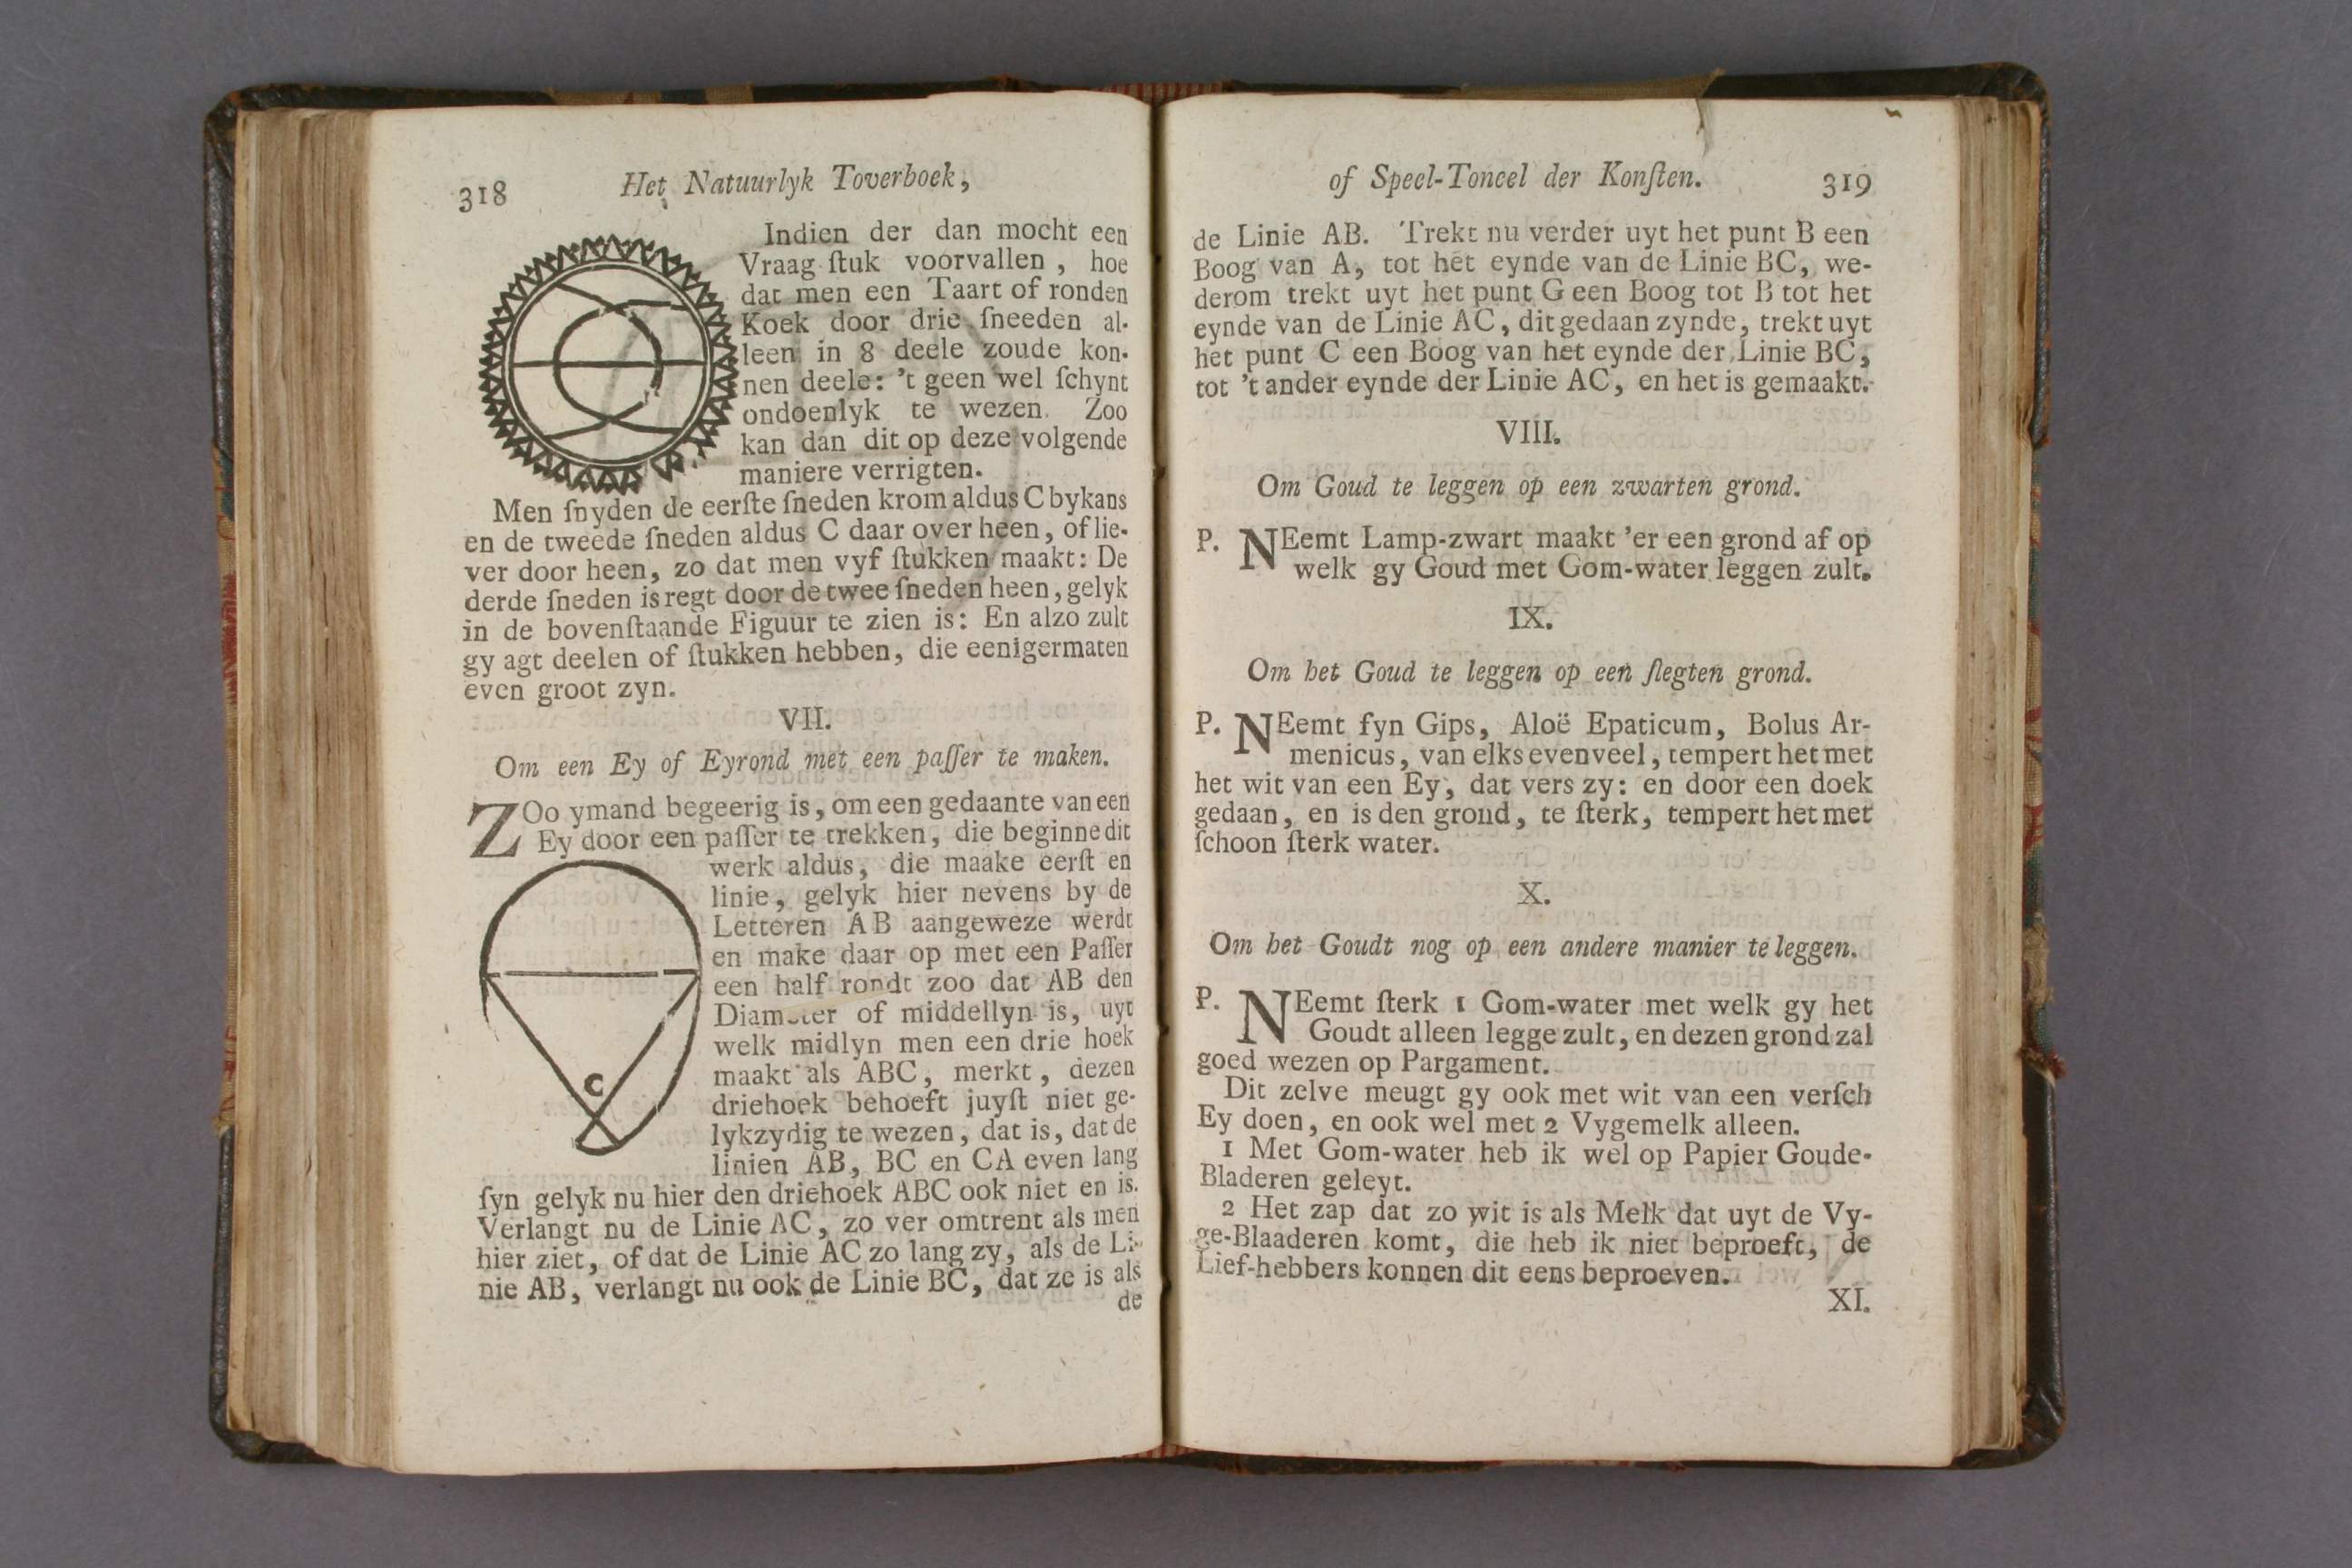 318 Het Natuurlyk Toverboek,
Indien der dan mocht een
Vraag ſtuk voorvallen , hoe
dat men een Taart of ronden
Koek door drie ſneeden al-
leen in 8 deele zoude kon-
nen deele: 't geen wel ſchynt
ondoenlyk te wezen. Zoo
kan dan dit op deze volgende
maniere verrigten.
Men ſnyden de eerſte ſneden krom aldus C bykans
en de tweede ſneden aldus C daar over heen, of lie-
ver door heen, zo dat men vyf ſtukken maakt: De
derde ſneden is regt door de twee ſneden heen, gelyk
in de bovenſtaande Figuur te zien is: En alzo zult
gy agt deelen of ſtukken hebben, die eenigermaten
even groot zyn.
VII.
Om een Ey of Eyrond met een paſſer te maken.
ZOo ymand begeerig is, om een gedaante van een
Ey door een paſſer te trekken, die beginne dit
werk aldus, die maake eerſt en
linie, gelyk hier nevens by de
Letteren AB aangeweze werdt
en make daar op met een Paſſer
een half rondt zoo dat AB den
Diameter of middellyn is, uyt
welk midlyn men een drie hoek
maakt als ABC, merkt, dezen
driehoek behoeft juyſt niet ge-
lykzydig te wezen, dat is, dat de
linien AB, BC en CA even lang
C
ſyn gelyk nu hier den driehoek ABC ook niet en is.
Verlangt nu de Linie AC, zo ver omtrent als men
hier ziet, of dat de Linie AC zo lang zy, als de Li-
nie AB, verlangt nu ook de Linie BC, dat ze is als
de
of Speel-Toneel der Konſten. 319
de Linie AB. Trekt nu verder uyt het punt B een
Boog van A, tot het eynde van de Linie BC, we-
derom trekt uyt het punt G een Boog tot B tot het
eynde van de Linie AC, dit gedaan zynde, trekt uyt
het punt C een Boog van het eynde der Linie BC,
tot 't ander eynde der Linie AC, en het is gemaakt.
VIII.
Om Goud te leggen op een zwarten grond.
P. NEemt Lamp-zwart maakt 'er een grond af op
welk gy Goud met Gom-water leggen zult.
IX.
Om het Goud te leggen op een ſlegten grond.
P. NEemt fyn Gips, Aloë Epaticum, Bolus Ar-
menicus, van elks evenveel, tempert het met
het wit van een Ey, dat vers zy: en door een doek
gedaan, en is den grond, te ſterk, tempert het met
ſchoon ſterk water.
X.
Om het Goudt nog op een andere manier te leggen.
P. NEemt ſterk 1 Gom-water met welk gy het
Goudt alleen legge zult, en dezen grond zal
goed wezen op Pargament.
Dit zelve meugt gy ook met wit van een verſch
Ey doen, en ook wel met 2 Vygemelk alleen.
1 Met Gom-water heb ik wel op Papier Goude-
Bladeren geleyt.
2 Het zap dat zo wit is als Melk dat uyt de Vy-
ge-Blaaderen komt, die heb ik niet beproeft, de
Lief-hebbers konnen dit eens beproeven.
XI.